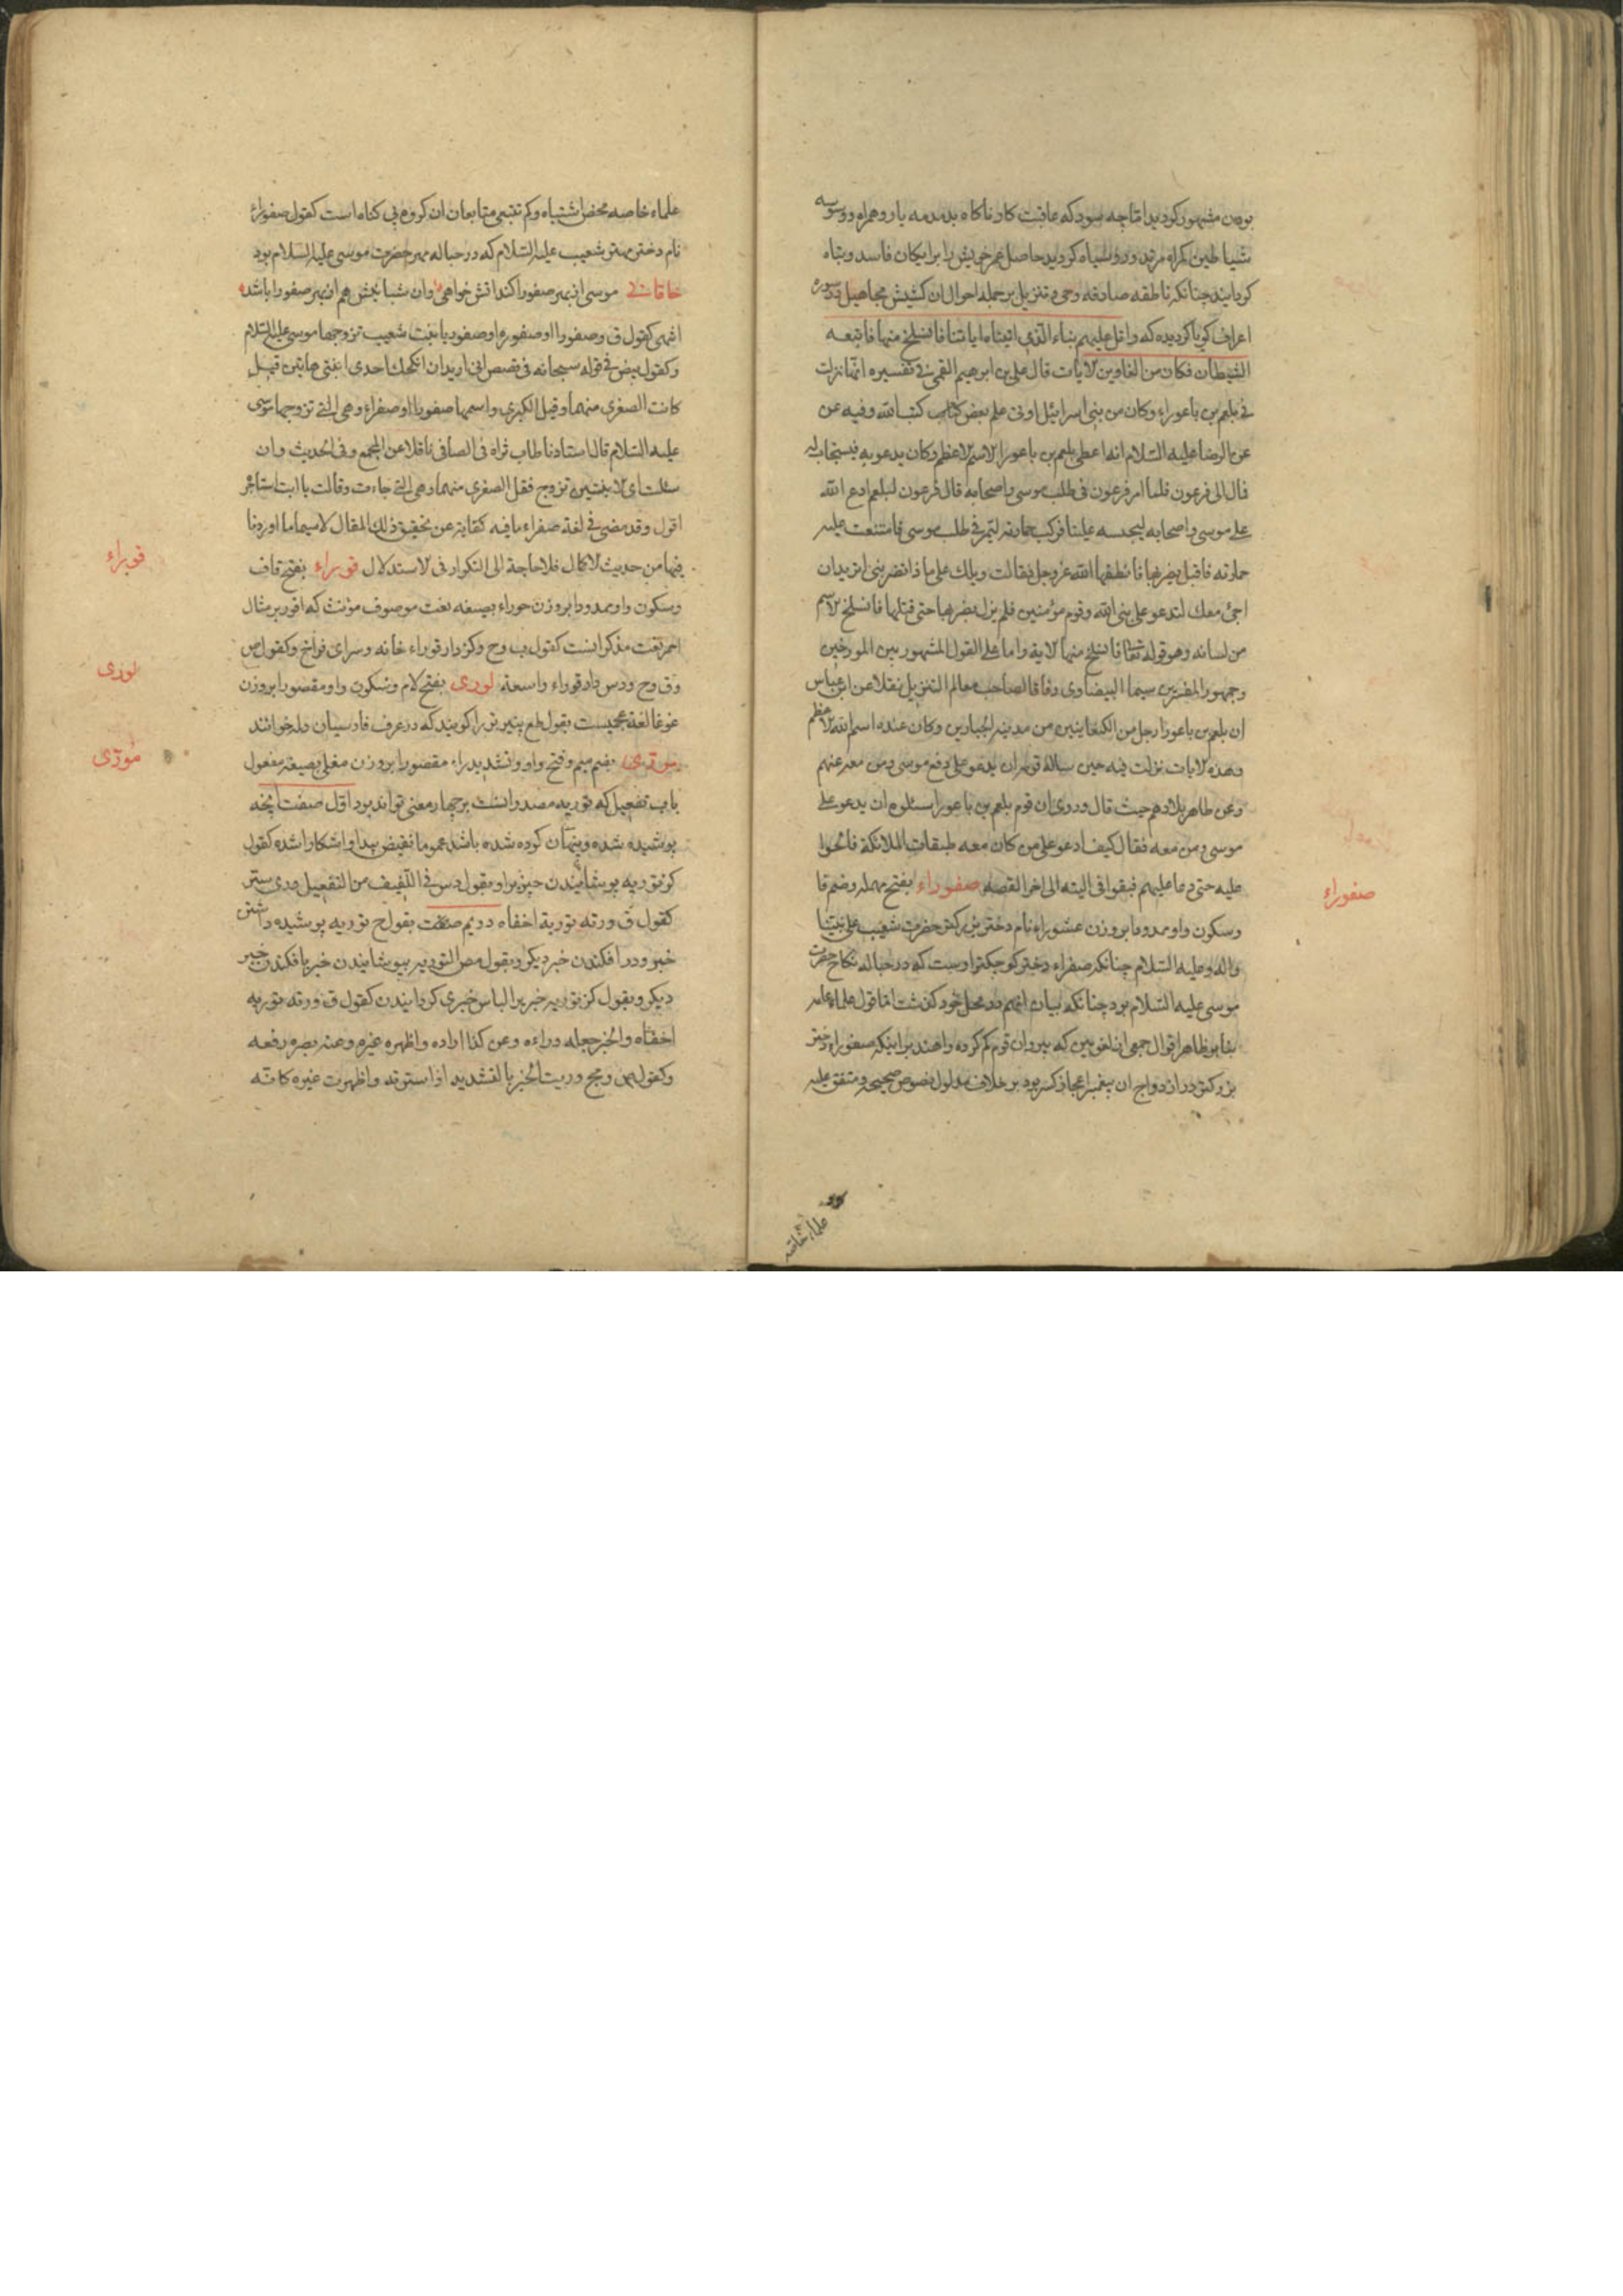 بودن مشهور کردید اما چه سود که عاقبت کار ناکاه بدمدمه یار و همراه و وسوسه
شیاطین کمراه مرتد و روسیاه کردید حاصل عمر خویش را برایکان فاسد و تباه
کردانید چنانکه ناطقه صادقه وحی و تنزیل بر جمله احوال ان کشیش مجاهیل در سوره
اعراف کویا کردیده که واتل علیهم نباء الذی اتیناه ایاتنا فانسلخ منها فاتبعه
الشیطان فکان من الغاوین الایات قال علی بن ابرهیم القمی فی تفسیره انها نزلت
فی بلعم بن باعوراء وکان من بنی اسرائیل اوتی علم بعض کتاب الله وفیه عن
عن الرضا علیه السلام انه اعطی بلعم بن باعورا الاسم الاعظم وکان یدعو به فیستجاب له
فمال الی فرعون فلما امر فرعون فی طلب موسی واصحابه قال فرعون لبلعم ادع الله
علی موسی واصحابه لیحبسه علینا فرکب حمارته لیمر فی طلب موسی فامتنعت علیه
حمارته فاقبل یضربها فانطقها الله عز وجل فقالت ویلک علی ماذا تضربنی اترید ان
اجئ معک لتدعو علی نبی الله وقوم مؤمنین فلم یزل یضربها حتی قتلها فانسلخ الاسم
من لسانه وهو قوله تعالی فانسلخ منها الایة واما علی القول المشهور بین المورخین
وجمهور المفسرین سیما البیضاوی وفاقا لصاحب معالم التنزیل نقلا عن ابن عباس
ان بلعم بن باعورا رجل من الکنعانیین من مدینة الجبارین وکان عنده اسم الله الاعظم
وهذه الایات نزلت فیه حین ساله قومه ان یدعو علی دفع موسی ومن معه عنهم
وعن ظاهر بلادهم حیث قال وروی ان قوم بلعم بن باعورا سئلوه ان یدعو علی
موسی ومن معه فقال کیف ادعو علی من کان معه طبقات الملائکة فالحوا
علیه حتی دعا علیهم فبقوا فی التیه الی اخر القصه صفوراء بفتح مهمله وضم فا
وسکون واو ممدودا بروزن عشوراء نام دختر بزرکتر حضرت شعیب علی نبینا
واله وعلیه السلام چنانکه صفراء دختر کوچکتر اوست که در حباله نکاح حضرت
موسی علیه السلام بود چنانکه بیان انهم در محل خود کذشت اما قول علماء عامه
بنابر ظاهر اقوال جمعی از لغویین که پیروان قوم کم کرده راهند بر اینکه صفوراء دختر
بزرکتر در ازدواج ان پیغمبر اعجاز کستر بود بر خلاف مدلول نصوص صحیحه و متفق علیه
علماء خاصه
صفوراء
علماء خاصه محض اشتباه و کم تتبعی متابعان ان کروه بی کناه است کقول صفوراء
نام دختر مهتر شعیب علیه السلام که در حباله مهر حضرت موسی علیه السلام بود
خاقانی موسی از بهر صفورا کند اتش خواهی وان شبانیش هم از بهر صفورا باشد
انتهی کقول ق وصفورا او صفوره او صفوریا بنت شعیب تزوجها موسی علیه السلام
وکقول بیض فی قوله سبحانه فی قصص انی ارید ان انکحک احدی ابنتی هاتین قیل
کانت الصغری منهما وقیل الکبری واسمها صفوریا او صفراء وهی التی تزوجها موسی
علیه السلام قال استادنا طاب ثراه فی الصافی ناقلا عن المجمع وفی الحدیث وان
سئلت ای الابنتین تزوج فقل الصغری منهما وهی التی جاءت وقالت یا ابت استأجره
اقول وقد مضی فی لغة صفراء ما فیه کفایة عن تحقیق ذلک المقال لا سیما ما اوردنا
فیها من حدیث الاکمال فلا حاجة الی التکرار فی الاستدلال قوراء بفتح قاف
وسکون واو ممدودا بروزن حوراء بصیغه نعت موصوف مؤنث که اقور بر مثال
احمر نعت مذکر انست کقول ب وح وکز دار قوراء خانه وسرای فراخ وکقول ص
وق وح ودس دار قوراء واسعة لوری بفتح لام وسکون واو مقصورا بروزن
غوغا لغة عجمیست بقول طع پنیر تر را کویند که در عرف فارسیان دلمه خوانند
مورّی بضم میم وفتح واو وتشدید راء مقصورا بروزن مغلی بصیغه مفعول
باب تفعیل که توریه مصدر انست بر چهار معنی تواند بود اول صفت انچه
پوشیده شده وپنهان کرده شده باشد عموما نقیض پیدا واشکارا شده کقول
کز توریه پوشانیدن چیزیرا وبقول دس فی اللفیف من التفعیل وری ستر
کقول ق وورته توریة اخفاه دویم صفت بقول ح توریه پوشیده داشتن
خبر ودر افکندن خبر دیکر وبقول مص التوریه بپوشانیدن خبر بافکندن خبر
دیکر وبقول کز توریه خبر برا لباس خبری کردانیدن کقول ق وورته توریه
اخفاه والخبر جعله وراءه وعن کذا اراده واظهره غیره وعنه بصره رفعه
وکقول ص ومج وریت الخبر بالتشدید اذا سترته واظهرت غیره کانه
قوراء
لوری
مورّی